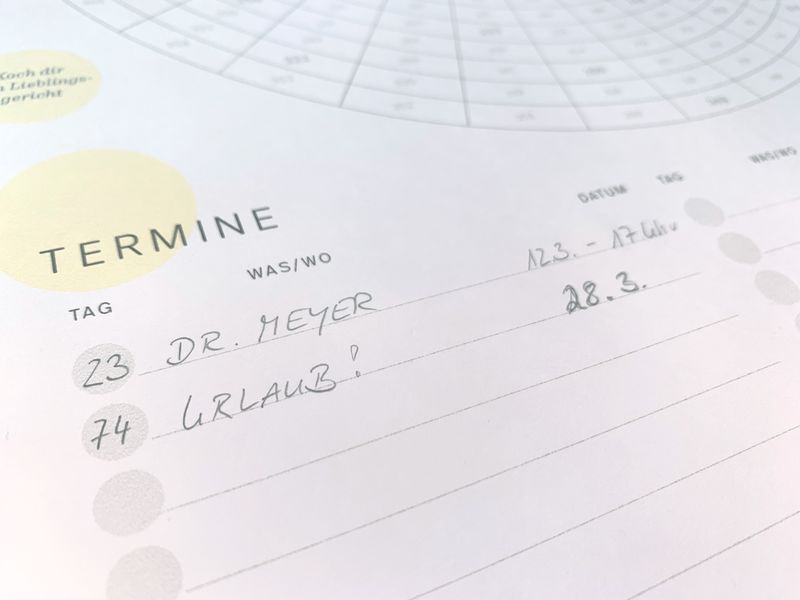 Koch dir
Lieblings-
gericht
TERMINE
TAG WAS/WO DATUM TAG WAS/WO
23 DR. MEYER 12.3. - 17 Uhr
74 URLAUB! 28.3.